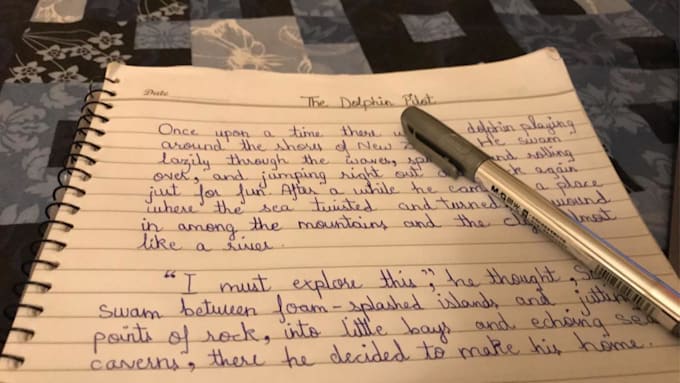 Date
The Dolphin Pilot
Once upon a time there dolphin playing
around the shores of New He swam
lazily through the waves, and rolling
over, and jumping right out again
just for fun. After a while he a place
where the sea twisted and turned wound
in among the mountains and the almost
like a river.
"I must explore this", he thought,
swam between foam-splashed islands and
points of rock, into little bays and echoing
caverns, there he decided to make his home.